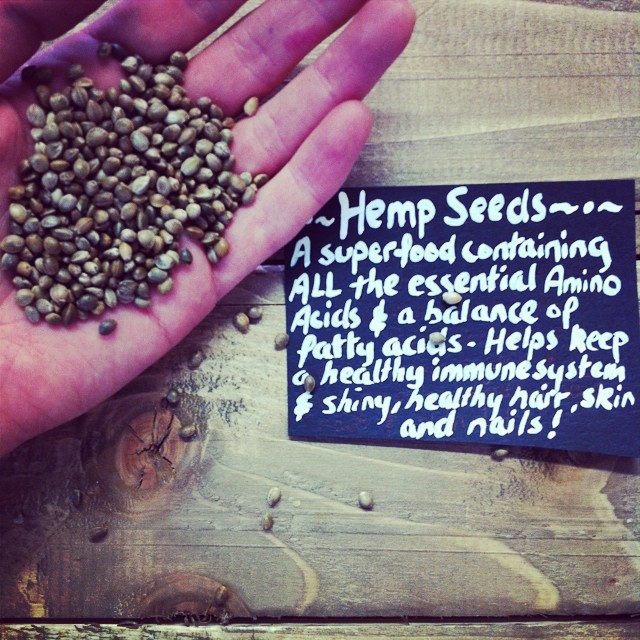 ~Hemp Seeds~·~
A superfood containing
ALL the essential Amino
Acids & a balance of
fatty acids - Helps keep
a healthy immune system
& shiny, healthy hair, skin
and nails!